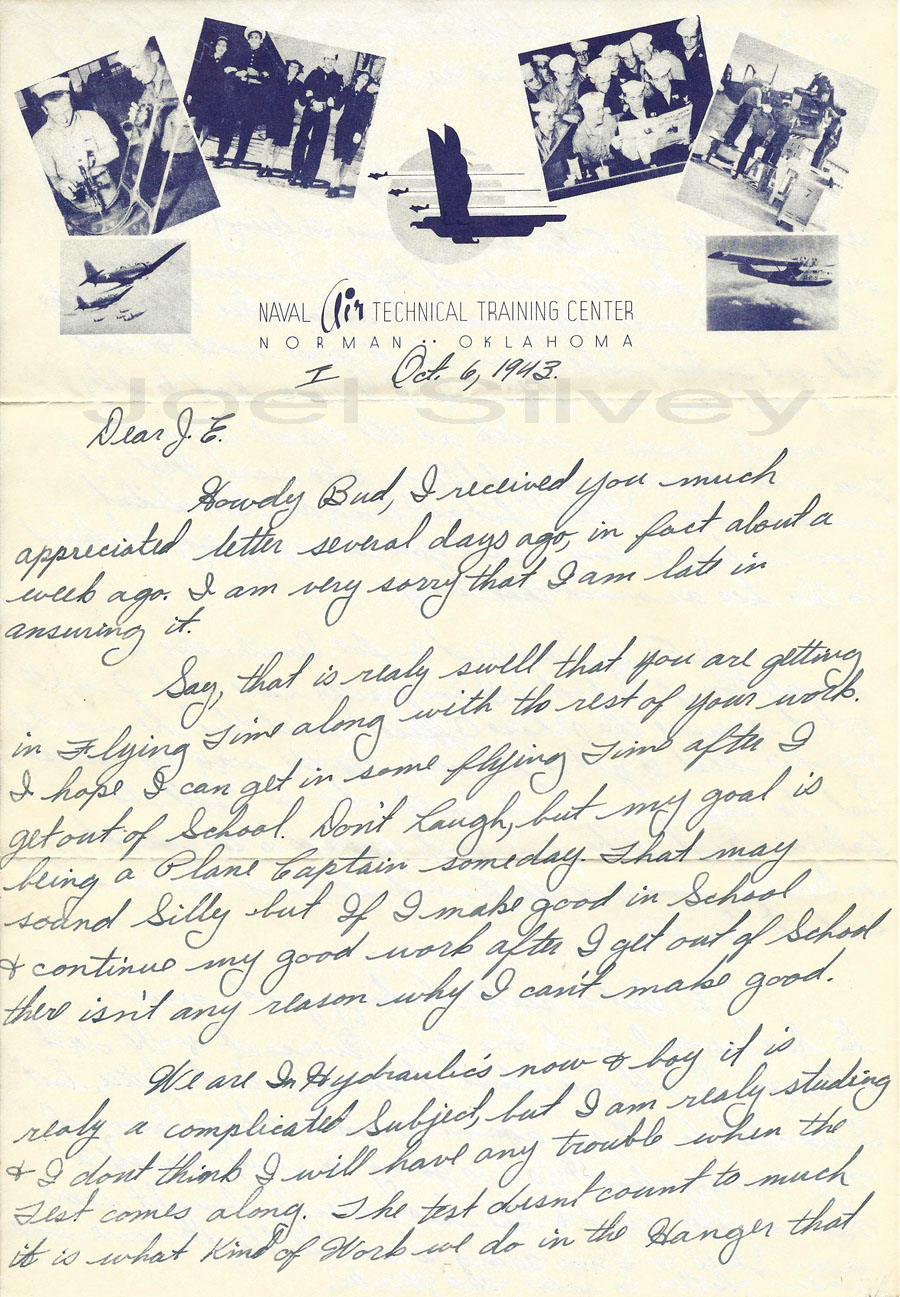 NAVAL Air TECHNICAL TRAINING CENTER
NORMAN •• OKLAHOMA
I Oct. 6, 1943.
Joel Silvey
Dear J. E.
Howdy Bud, I received you much
appreciated letter several days ago, in fact about a
week ago. I am very sorry that I am late in
ansuring it.
Say, that is realy swell that you are getting
in Flying Time along with the rest of your work.
I hope I can get in some flying Time after I
get out of School. Don't laugh, but my goal is
being a Plane Captain someday. That may
sound Silly but If I make good in School
& continue my good work after I get out of School
there isn't any reason why I can't make good.
We are In Hydraulic's now & boy it is
realy a complicated Subject, but I am realy studing
& I dont think I will have any trouble when the
Test comes along. The test doesnt count to much
it is what Kind of Work we do in the Hanger that